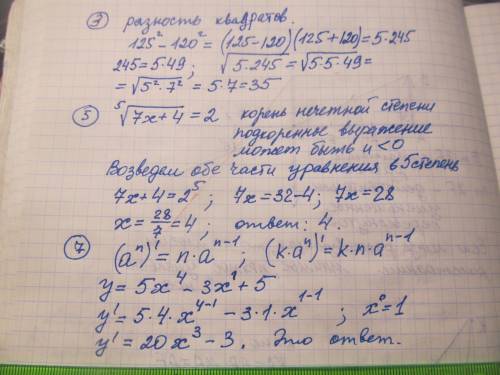 ③ разность квадратов.
125² - 120² = (125-120)(125+120) = 5·245
245 = 5·49; √(5·245) = √(5·5·49) =
= √(5²·7²) = 5·7 = 35
⑤ ⁵√(7x+4) = 2 корень нечетной степени
подкоренные выражение
может быть и <0
Возведем обе части уравнения в 5 степень
7x+4 = 2⁵; 7x = 32-4; 7x = 28
x = 28/7 = 4; ответ: 4.
⑦ (aⁿ)' = n·aⁿ⁻¹; (k·aⁿ)' = k·n·aⁿ⁻¹
y = 5x⁴ - 3x¹ + 5
y' = 5·4·x⁴⁻¹ - 3·1·x¹⁻¹ ; x⁰ = 1
y' = 20x³ - 3. Это ответ.